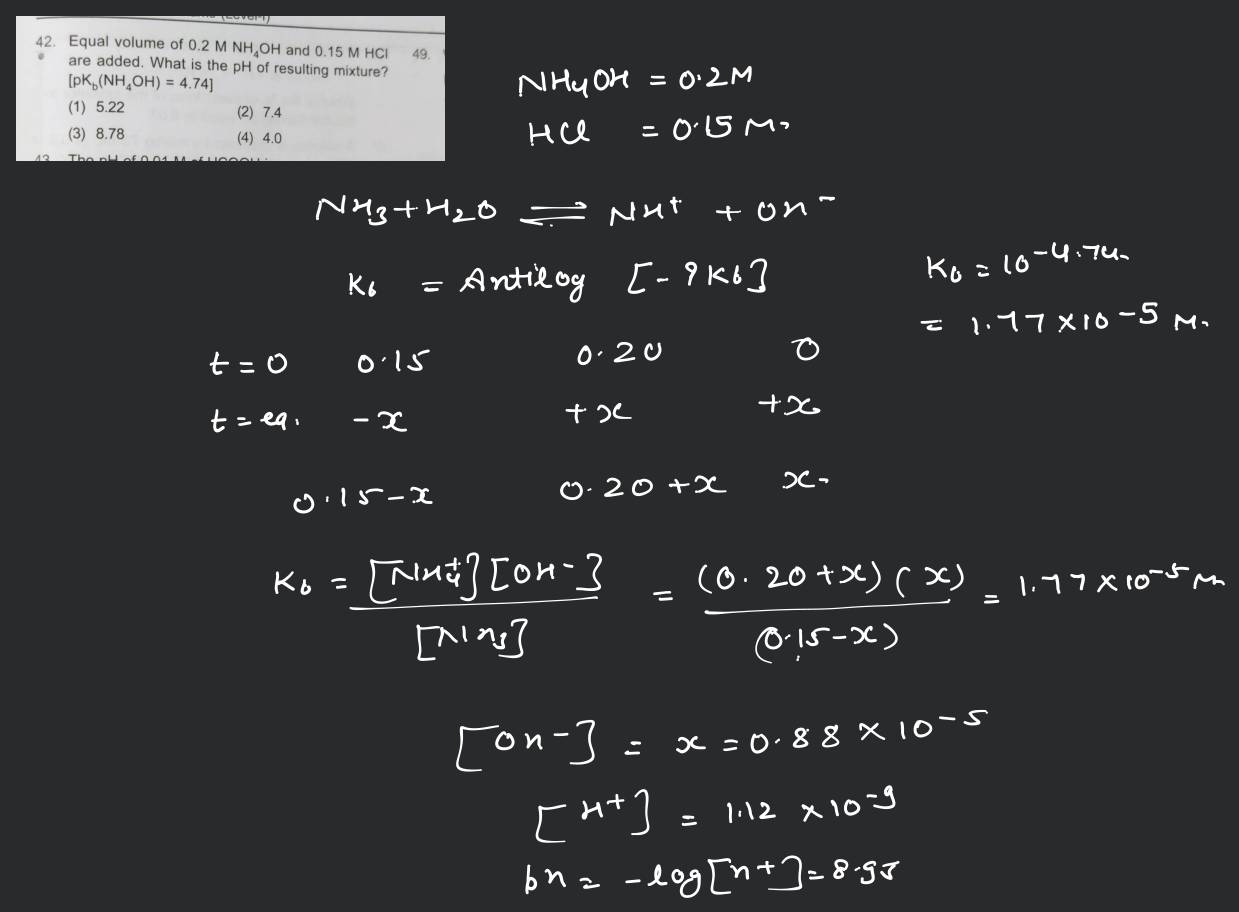 42. Equal volume of 0.2 M NH₄OH and 0.15 M HCl 49.
are added. What is the pH of resulting mixture?
[pK_b(NH₄OH) = 4.74]
(1) 5.22 (2) 7.4
(3) 8.78 (4) 4.0
43. The pH of 0.01 M of HCOOH
NH₄OH = 0.2M
HCl = 0.15 M.
NH₃ + H₂O ⇌ NH⁺ + OH⁻
K_b = Antilog [-PKb] K_b = 10^-4.74.
= 1.77 × 10⁻⁵ M.
t = 0 0.15 0.20 0
t = eq. -x +x +x
0.15-x 0.20+x x.
K_b = [NH₄⁺][OH⁻] / [NH₃] = (0.20+x)(x) / (0.15-x) = 1.77 × 10⁻⁵ M
[OH⁻] = x = 0.88 × 10⁻⁵
[H⁺] = 1.12 × 10⁻⁹
pH = -log[H⁺] = 8.95